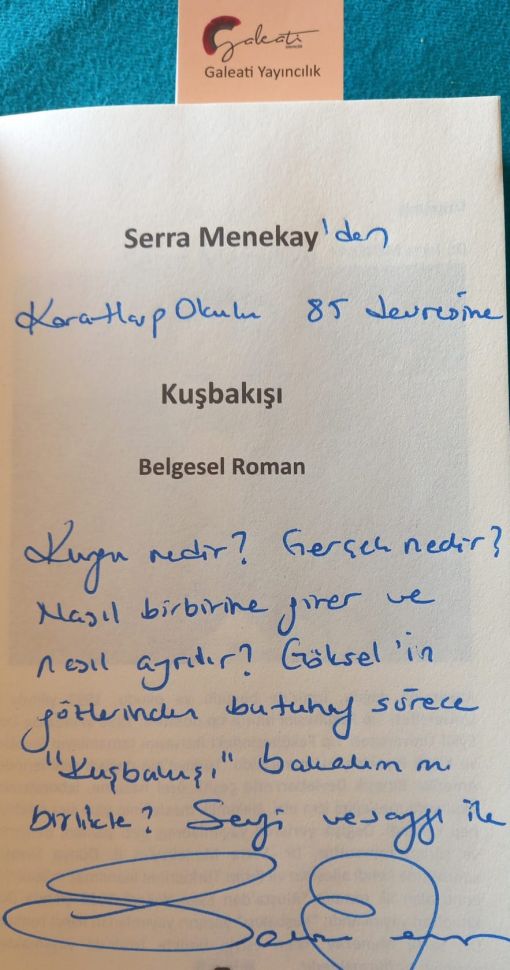 Galeati
Galeati Yayıncılık
Serra Menekay'den
Kara Harp Okulu 85 devresine
Kuşbakışı
Belgesel Roman
Kurgu nedir? Gerçek nedir?
Nasıl birbirine girer ve
nasıl ayrılır? Göksel'in
gözlerinden bu tuhaf sürece
"Kuşbakışı" bakalım mı
birlikte? Sevgi ve saygı ile